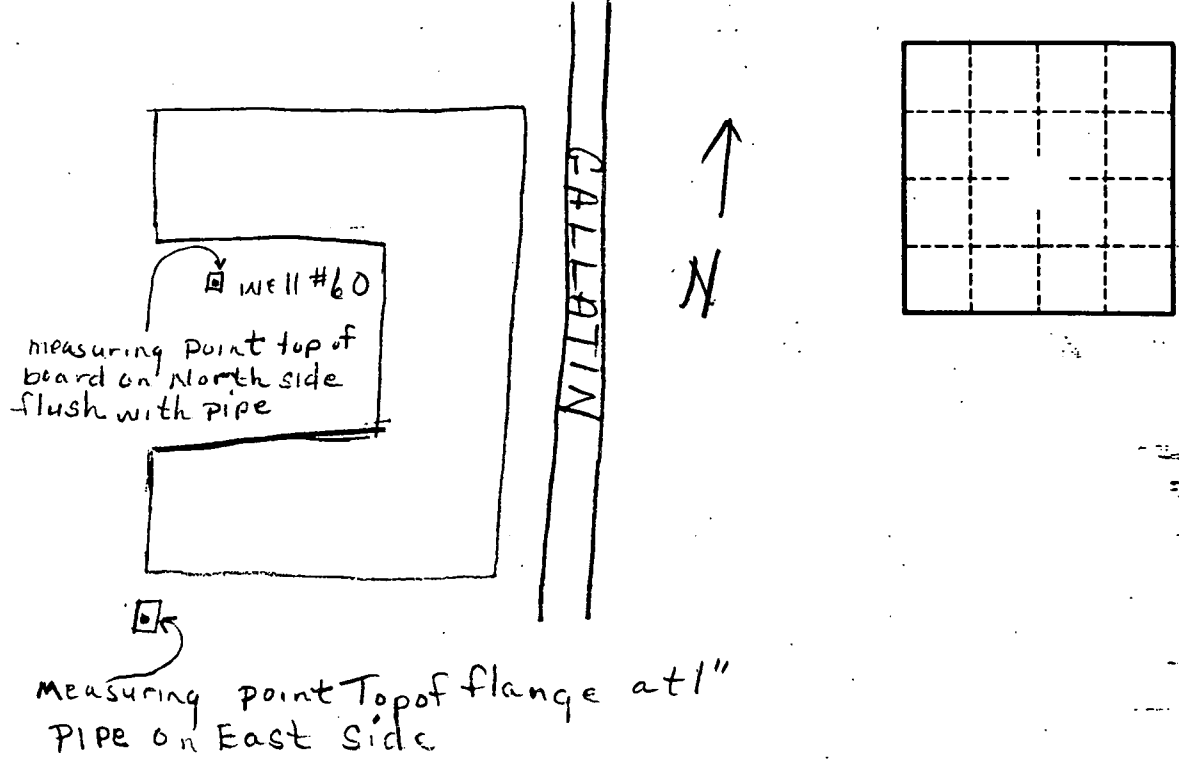 CALLATIN
N
WEll #60
measuring point top of
board on North side
flush with pipe
Measuring point Top of flange at 1"
PIPE on East Side